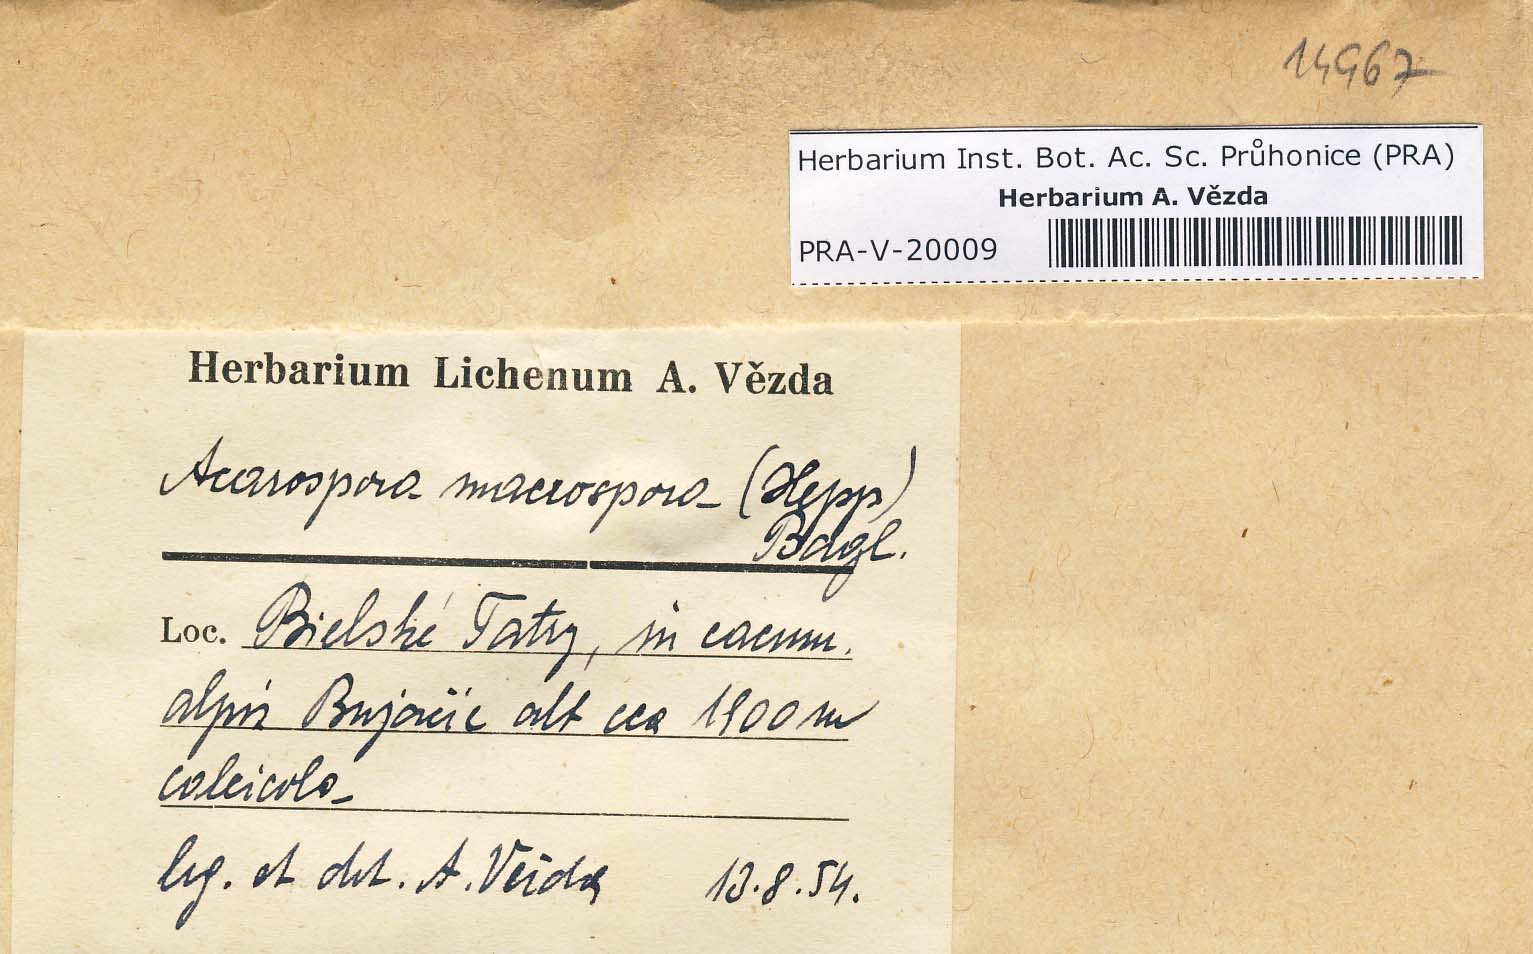 14967
Herbarium Inst. Bot. Ac. Sc. Průhonice (PRA)
Herbarium A. Vězda
PRA-V-20009
Herbarium Lichenum A. Vězda
Acarospora macrospora (Hepp)
Bagl.
Loc. Bielské Tatry, in cacum.
alpis Bujačic alt cca 1900 m
calcicola
leg. et det. A. Vězda 13.8.54.